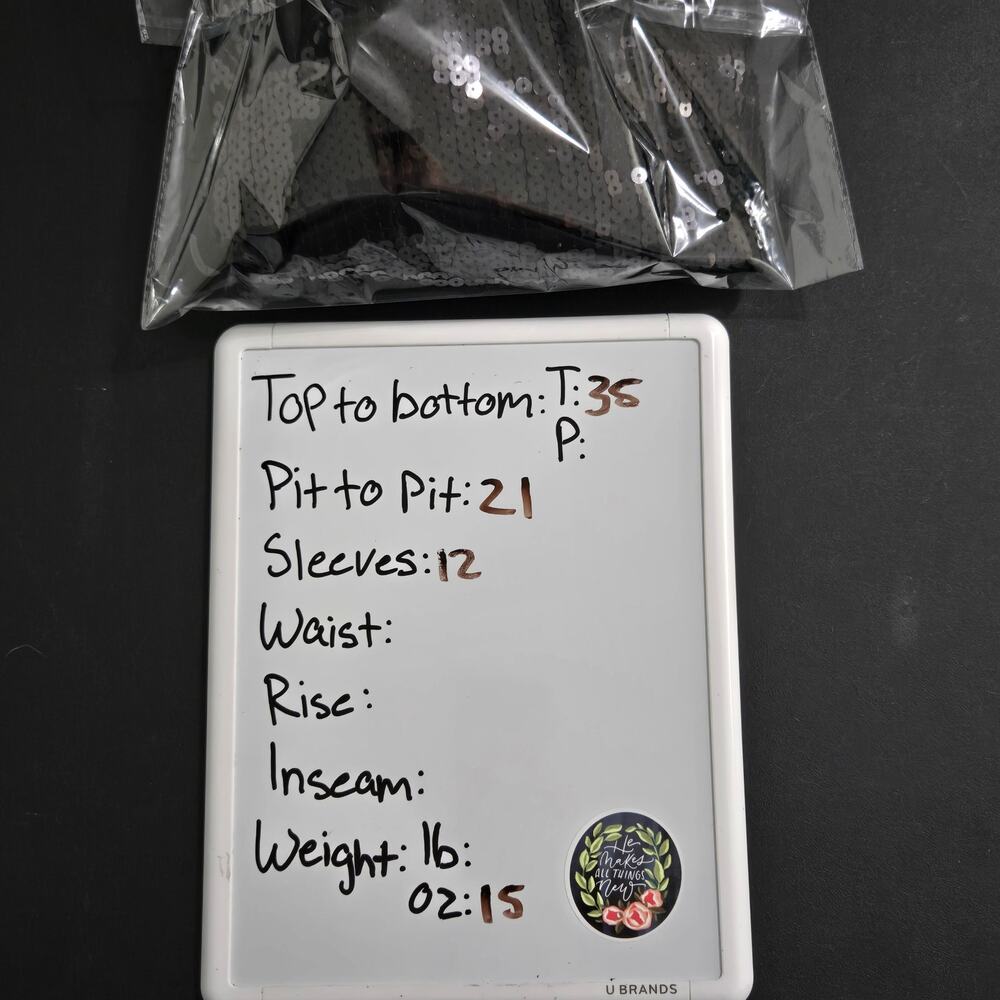 Top to bottom: T: 35
P:
Pit to Pit: 21
Sleeves: 12
Waist:
Rise:
Inseam:
Weight: lb:
oz: 15
He
Makes
ALL THINGS
New
U BRANDS